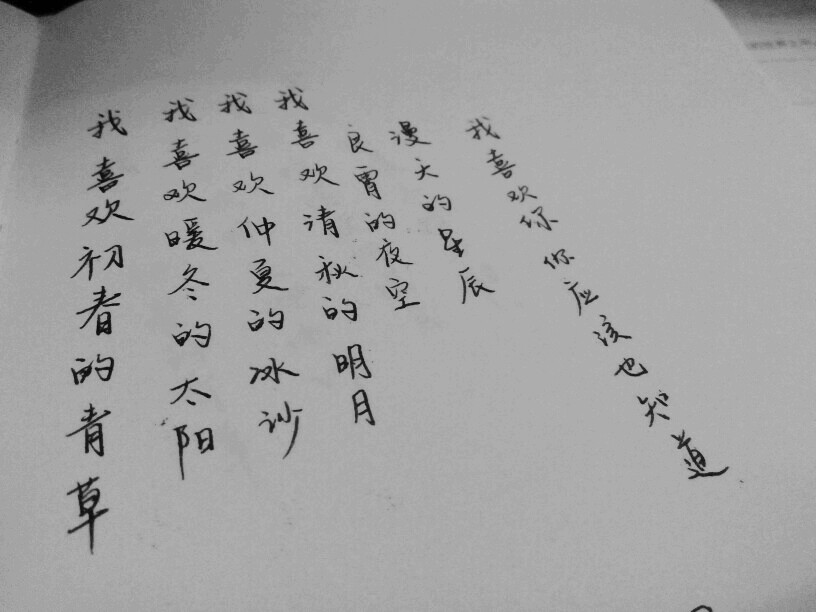 我喜欢初春的青草
我喜欢暖冬的太阳
我喜欢仲夏的冰沙
我喜欢清秋的明月
良宵的夜空
漫天的星辰
我喜欢你你应该也知道